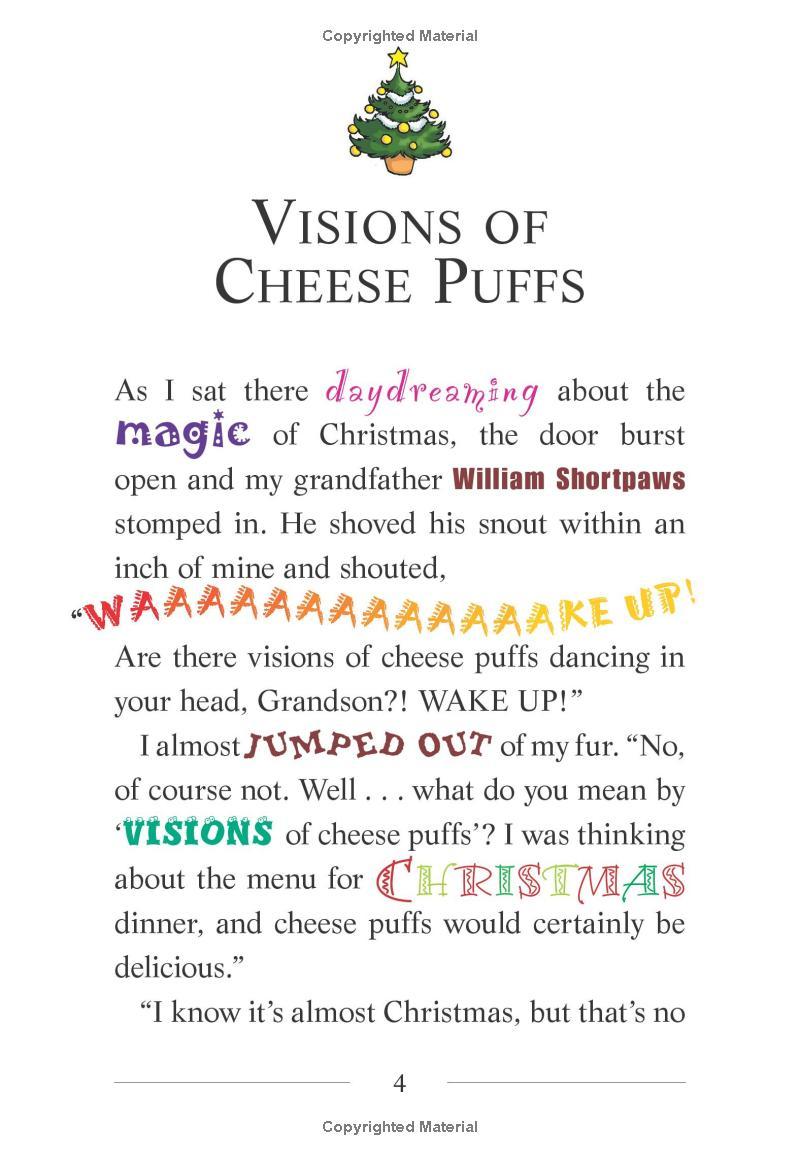 Copyrighted Material
VISIONS OF
CHEESE PUFFS
As I sat there daydreaming about the
magic of Christmas, the door burst
open and my grandfather William Shortpaws
stomped in. He shoved his snout within an
inch of mine and shouted,
“WAAAAAAAAAAAAAKE UP!
Are there visions of cheese puffs dancing in
your head, Grandson?! WAKE UP!”
I almost JUMPED OUT of my fur. “No,
of course not. Well . . . what do you mean by
‘VISIONS of cheese puffs’? I was thinking
about the menu for CHRISTMAS
dinner, and cheese puffs would certainly be
delicious.”
“I know it’s almost Christmas, but that’s no
4
Copyrighted Material